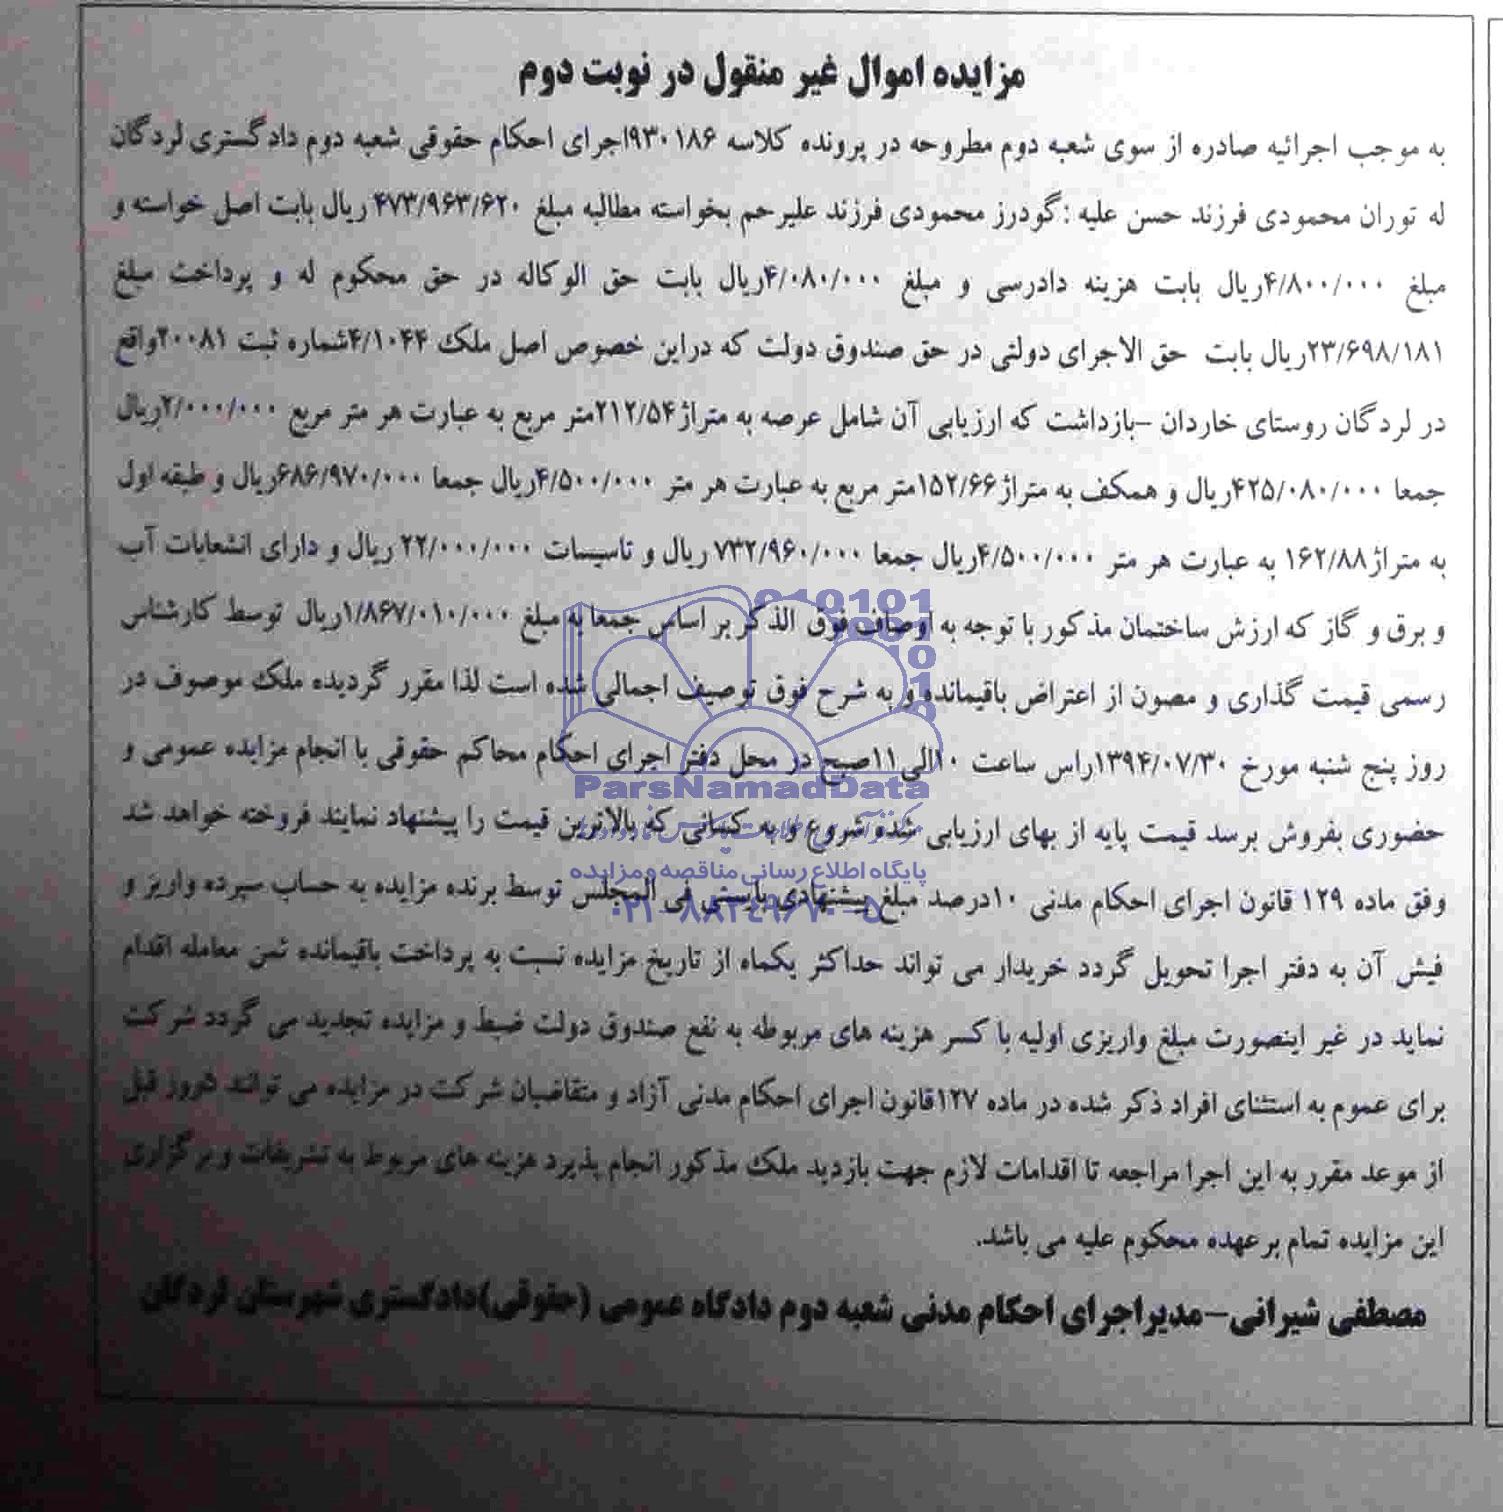 مزایده اموال غیر منقول در نوبت دوم
به موجب اجرائیه صادره از سوی شعبه دوم مطروحه در پرونده کلاسه ۹۳۰۱۸۶اجرای احکام حقوقی شعبه دوم دادگستری لردگان
له توران محمودی فرزند حسن علیه :گودرز محمودی فرزند علیرحم بخواسته مطالبه مبلغ ۴۷۳/۹۶۳/۶۲۰ ریال بابت اصل خواسته و
مبلغ ۴/۸۰۰/۰۰۰ریال بابت هزینه دادرسی و مبلغ ۴/۰۸۰/۰۰۰ریال بابت حق الوکاله در حق محکوم له و پرداخت مبلغ
۲۳/۶۹۸/۱۸۱ریال بابت حق الاجرای دولتی در حق صندوق دولت که دراین خصوص اصل ملک ۴/۱۰۴۴شماره ثبت ۲۰۰۸۱واقع
در لردگان روستای خاردان –بازداشت که ارزیابی آن شامل عرصه به متراژ۲۱۲/۵۴متر مربع به عبارت هر متر مربع ۲/۰۰۰/۰۰۰ریال
جمعا ۴۲۵/۰۸۰/۰۰۰ریال و همکف به متراژ۱۵۲/۶۶متر مربع به عبارت هر متر ۴/۵۰۰/۰۰۰ریال جمعا ۶۸۶/۹۷۰/۰۰۰ریال و طبقه اول
به متراژ۱۶۲/۸۸ به عبارت هر متر ۴/۵۰۰/۰۰۰ریال جمعا ۷۳۲/۹۶۰/۰۰۰ ریال و تاسیسات ۲۲/۰۰۰/۰۰۰ ریال و دارای انشعابات آب
و برق و گاز که ارزش ساختمان مذکور با توجه به اوصاف فوق الذکر بر اساس جمعا به مبلغ ۱/۸۶۷/۰۱۰/۰۰۰ریال توسط کارشناس
رسمی قیمت گذاری و مصون از اعتراض باقیمانده و به شرح فوق توصیف اجمالی شده است لذا مقرر گردیده ملک موصوف در
روز پنج شنبه مورخ ۱۳۹۴/۰۷/۳۰راس ساعت ۱۰الی۱۱صبح در محل دفتر اجرای احکام محاکم حقوقی با انجام مزایده عمومی و
حضوری بفروش برسد قیمت پایه از بهای ارزیابی شده شروع و به کسانی که بالاترین قیمت را پیشنهاد نمایند فروخته خواهد شد
وفق ماده ۱۲۹ قانون اجرای احکام مدنی ۱۰درصد مبلغ پیشنهادی بایستی فی المجلس توسط برنده مزایده به حساب سپرده واریز و
فیش آن به دفتر اجرا تحویل گردد خریدار می تواند حداکثر یکماه از تاریخ مزایده نسبت به پرداخت باقیمانده ثمن معامله اقدام
نماید در غیر اینصورت مبلغ واریزی اولیه با کسر هزینه های مربوطه به نفع صندوق دولت ضبط و مزایده تجدید می گردد شرکت
برای عموم به استثنای افراد ذکر شده در ماده ۱۲۷قانون اجرای احکام مدنی آزاد و متقاضیان شرکت در مزایده می توانند ۵روز قبل
از موعد مقرر به این اجرا مراجعه تا اقدامات لازم جهت بازدید ملک مذکور انجام پذیرد هزینه های مربوط به تشریفات و برگزاری
این مزایده تمام بر عهده محکوم علیه می باشد.
مصطفی شیرانی–مدیراجرای احکام مدنی شعبه دوم دادگاه عمومی (حقوقی)دادگستری شهرستان لردگان
ParsNamadData
پایگاه اطلاع رسانی مناقصه و مزایده
۰۲۱-۸۸۳۴۹۶۷۰-۵